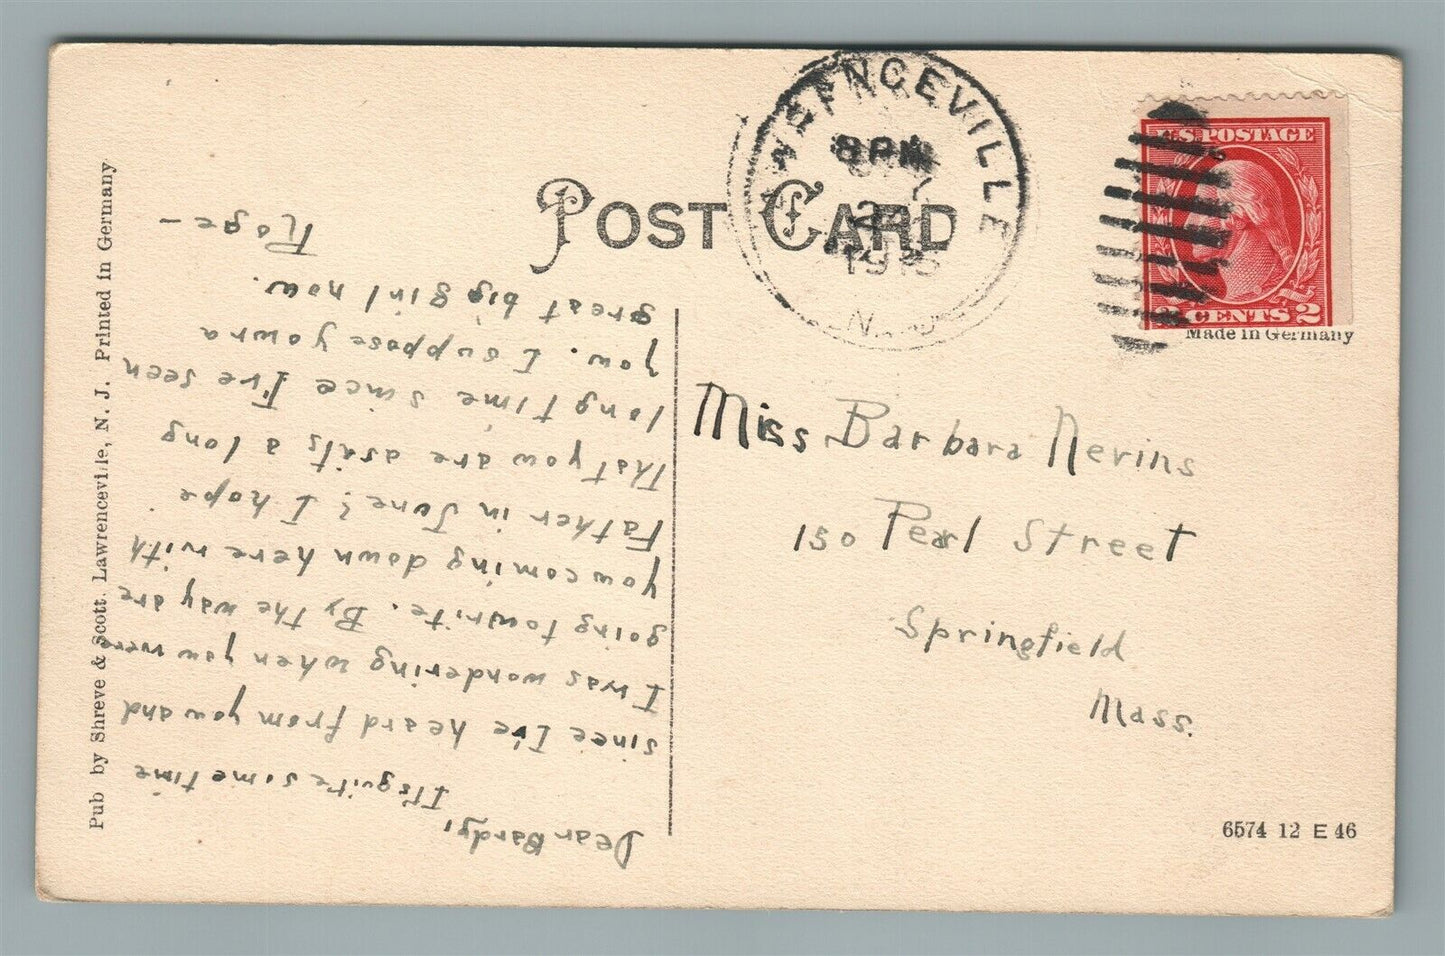 POST CARD
LAWRENCEVILLE
8 PM
N.J.
U.S. POSTAGE
2 CENTS 2
Made in Germany
Miss Barbara Nevins
150 Pearl Street
Springfield
Mass.
6574 12 E 46
Pub by Shreve & Scott. Lawrenceville, N. J. Printed in Germany
Dear Bardy,
It's quite some time
since I've heard from you and
I was wondering when you were
going to write. By the way are
you coming down here with
Father in June? I hope
that you are as it's a long
long time since I've seen
you. I suppose your a
great big girl now.
Roge -